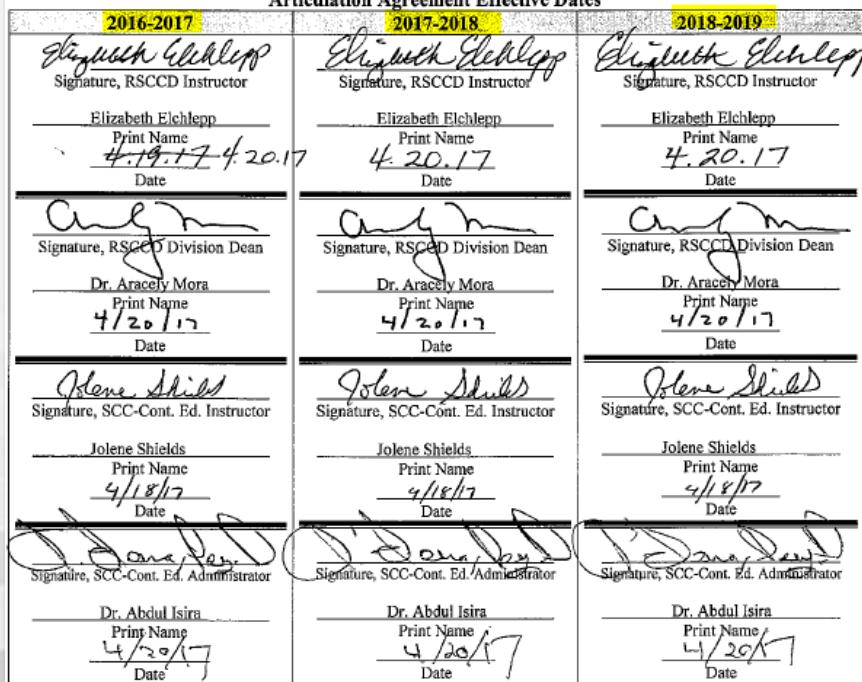 Articulation Agreement Effective Dates
2016-2017 2017-2018 2018-2019
Elizabeth Elchlepp Elizabeth Elchlepp Elizabeth Elchlepp
Signature, RSCCD Instructor Signature, RSCCD Instructor Signature, RSCCD Instructor
Elizabeth Elchlepp Elizabeth Elchlepp Elizabeth Elchlepp
Print Name Print Name Print Name
4.19.17 4.20.17 4.20.17 4.20.17
Date Date Date
Signature, RSCCD Division Dean Signature, RSCCD Division Dean Signature, RSCCD Division Dean
Dr. Aracely Mora Dr. Aracely Mora Dr. Aracely Mora
Print Name Print Name Print Name
4/20/17 4/20/17 4/20/17
Date Date Date
Jolene Shields Jolene Shields Jolene Shields
Signature, SCC-Cont. Ed. Instructor Signature, SCC-Cont. Ed. Instructor Signature, SCC-Cont. Ed. Instructor
Jolene Shields Jolene Shields Jolene Shields
Print Name Print Name Print Name
4/18/17 4/18/17 4/18/17
Date Date Date
Signature, SCC-Cont. Ed. Administrator Signature, SCC-Cont. Ed. Administrator Signature, SCC-Cont. Ed. Administrator
Dr. Abdul Isira Dr. Abdul Isira Dr. Abdul Isira
Print Name Print Name Print Name
4/20/17 4/20/17 4/20/17
Date Date Date